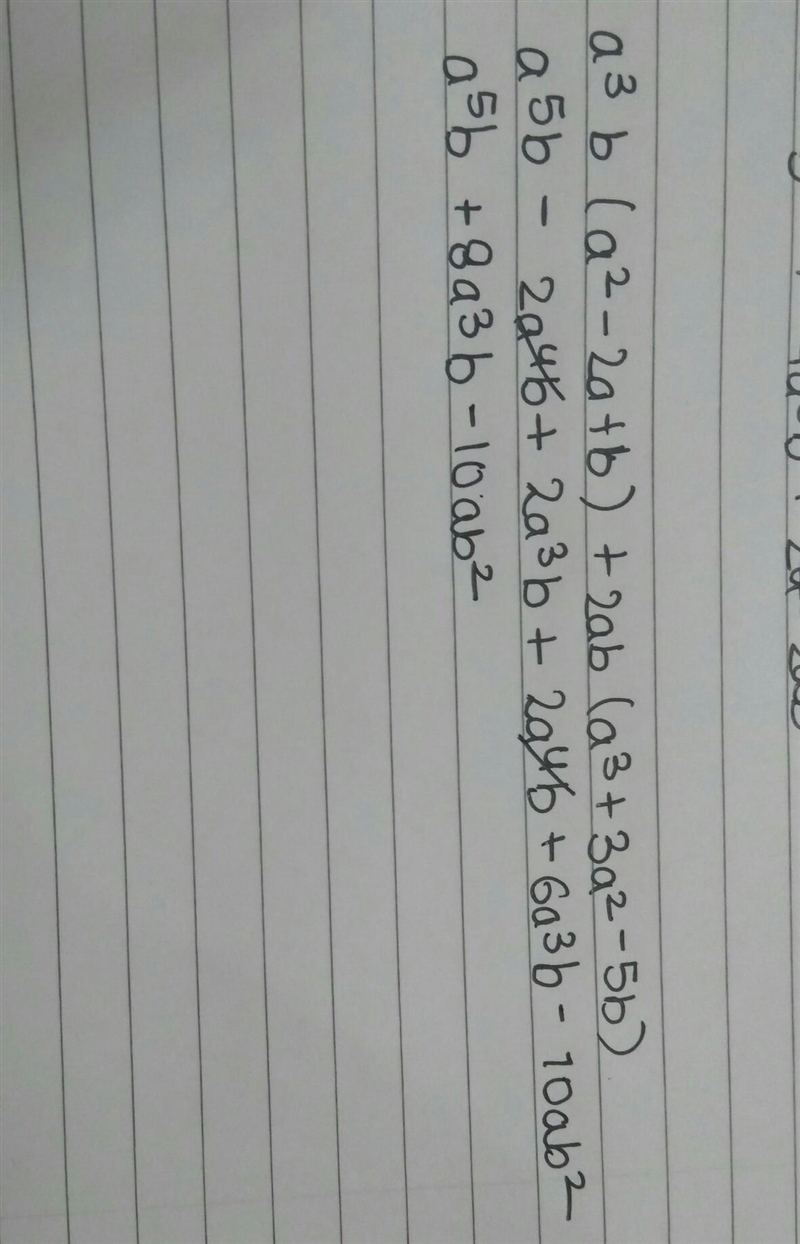 a³b (a² - 2a + b) + 2ab (a³ + 3a² - 5b)
a⁵b - 2a⁴b + 2a³b + 2a⁴b + 6a³b - 10ab²
a⁵b + 8a³b - 10ab²